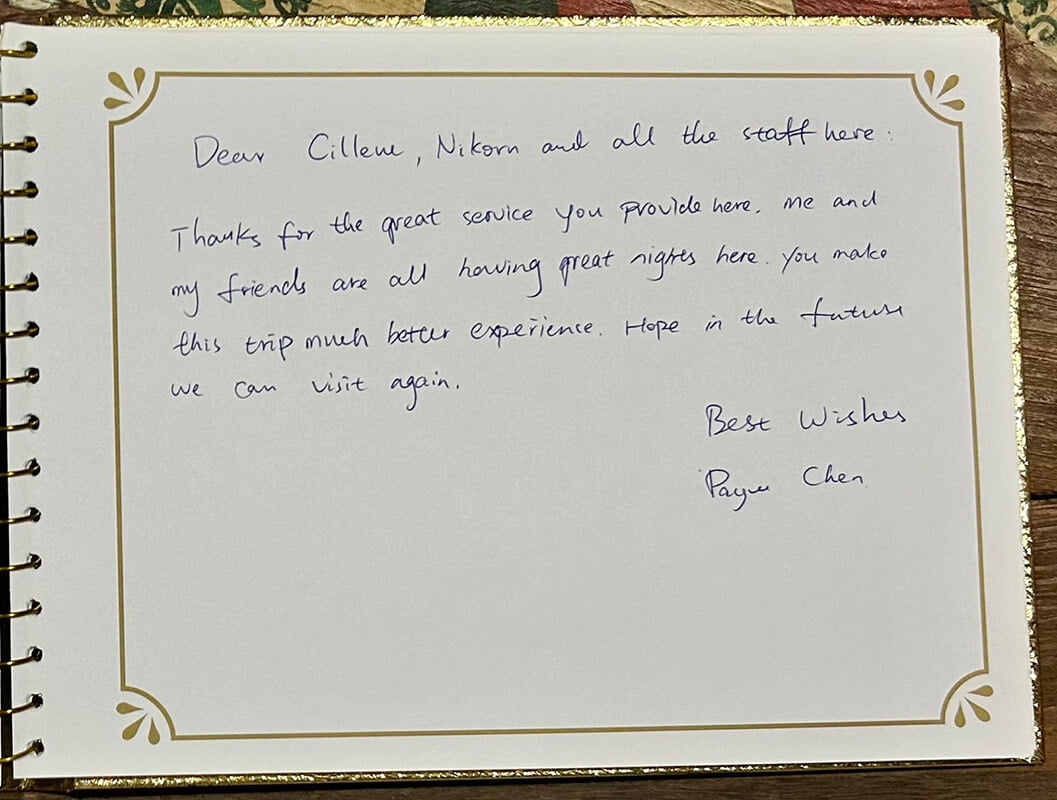 Dear Cillene, Nikorn and all the staff here:
Thanks for the great service you provide here. Me and
my friends are all having great nights here. You make
this trip much better experience. Hope in the future
we can visit again.
Best Wishes
Chen